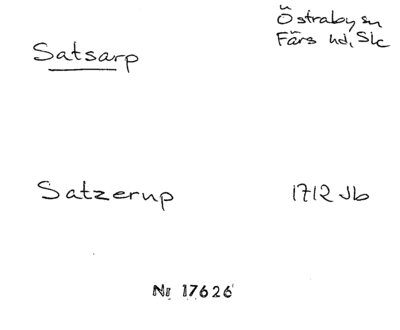 Östraby sn
Färs hd, Sk
Satsarp
Satzerup 1712 Jb
Nr 17626